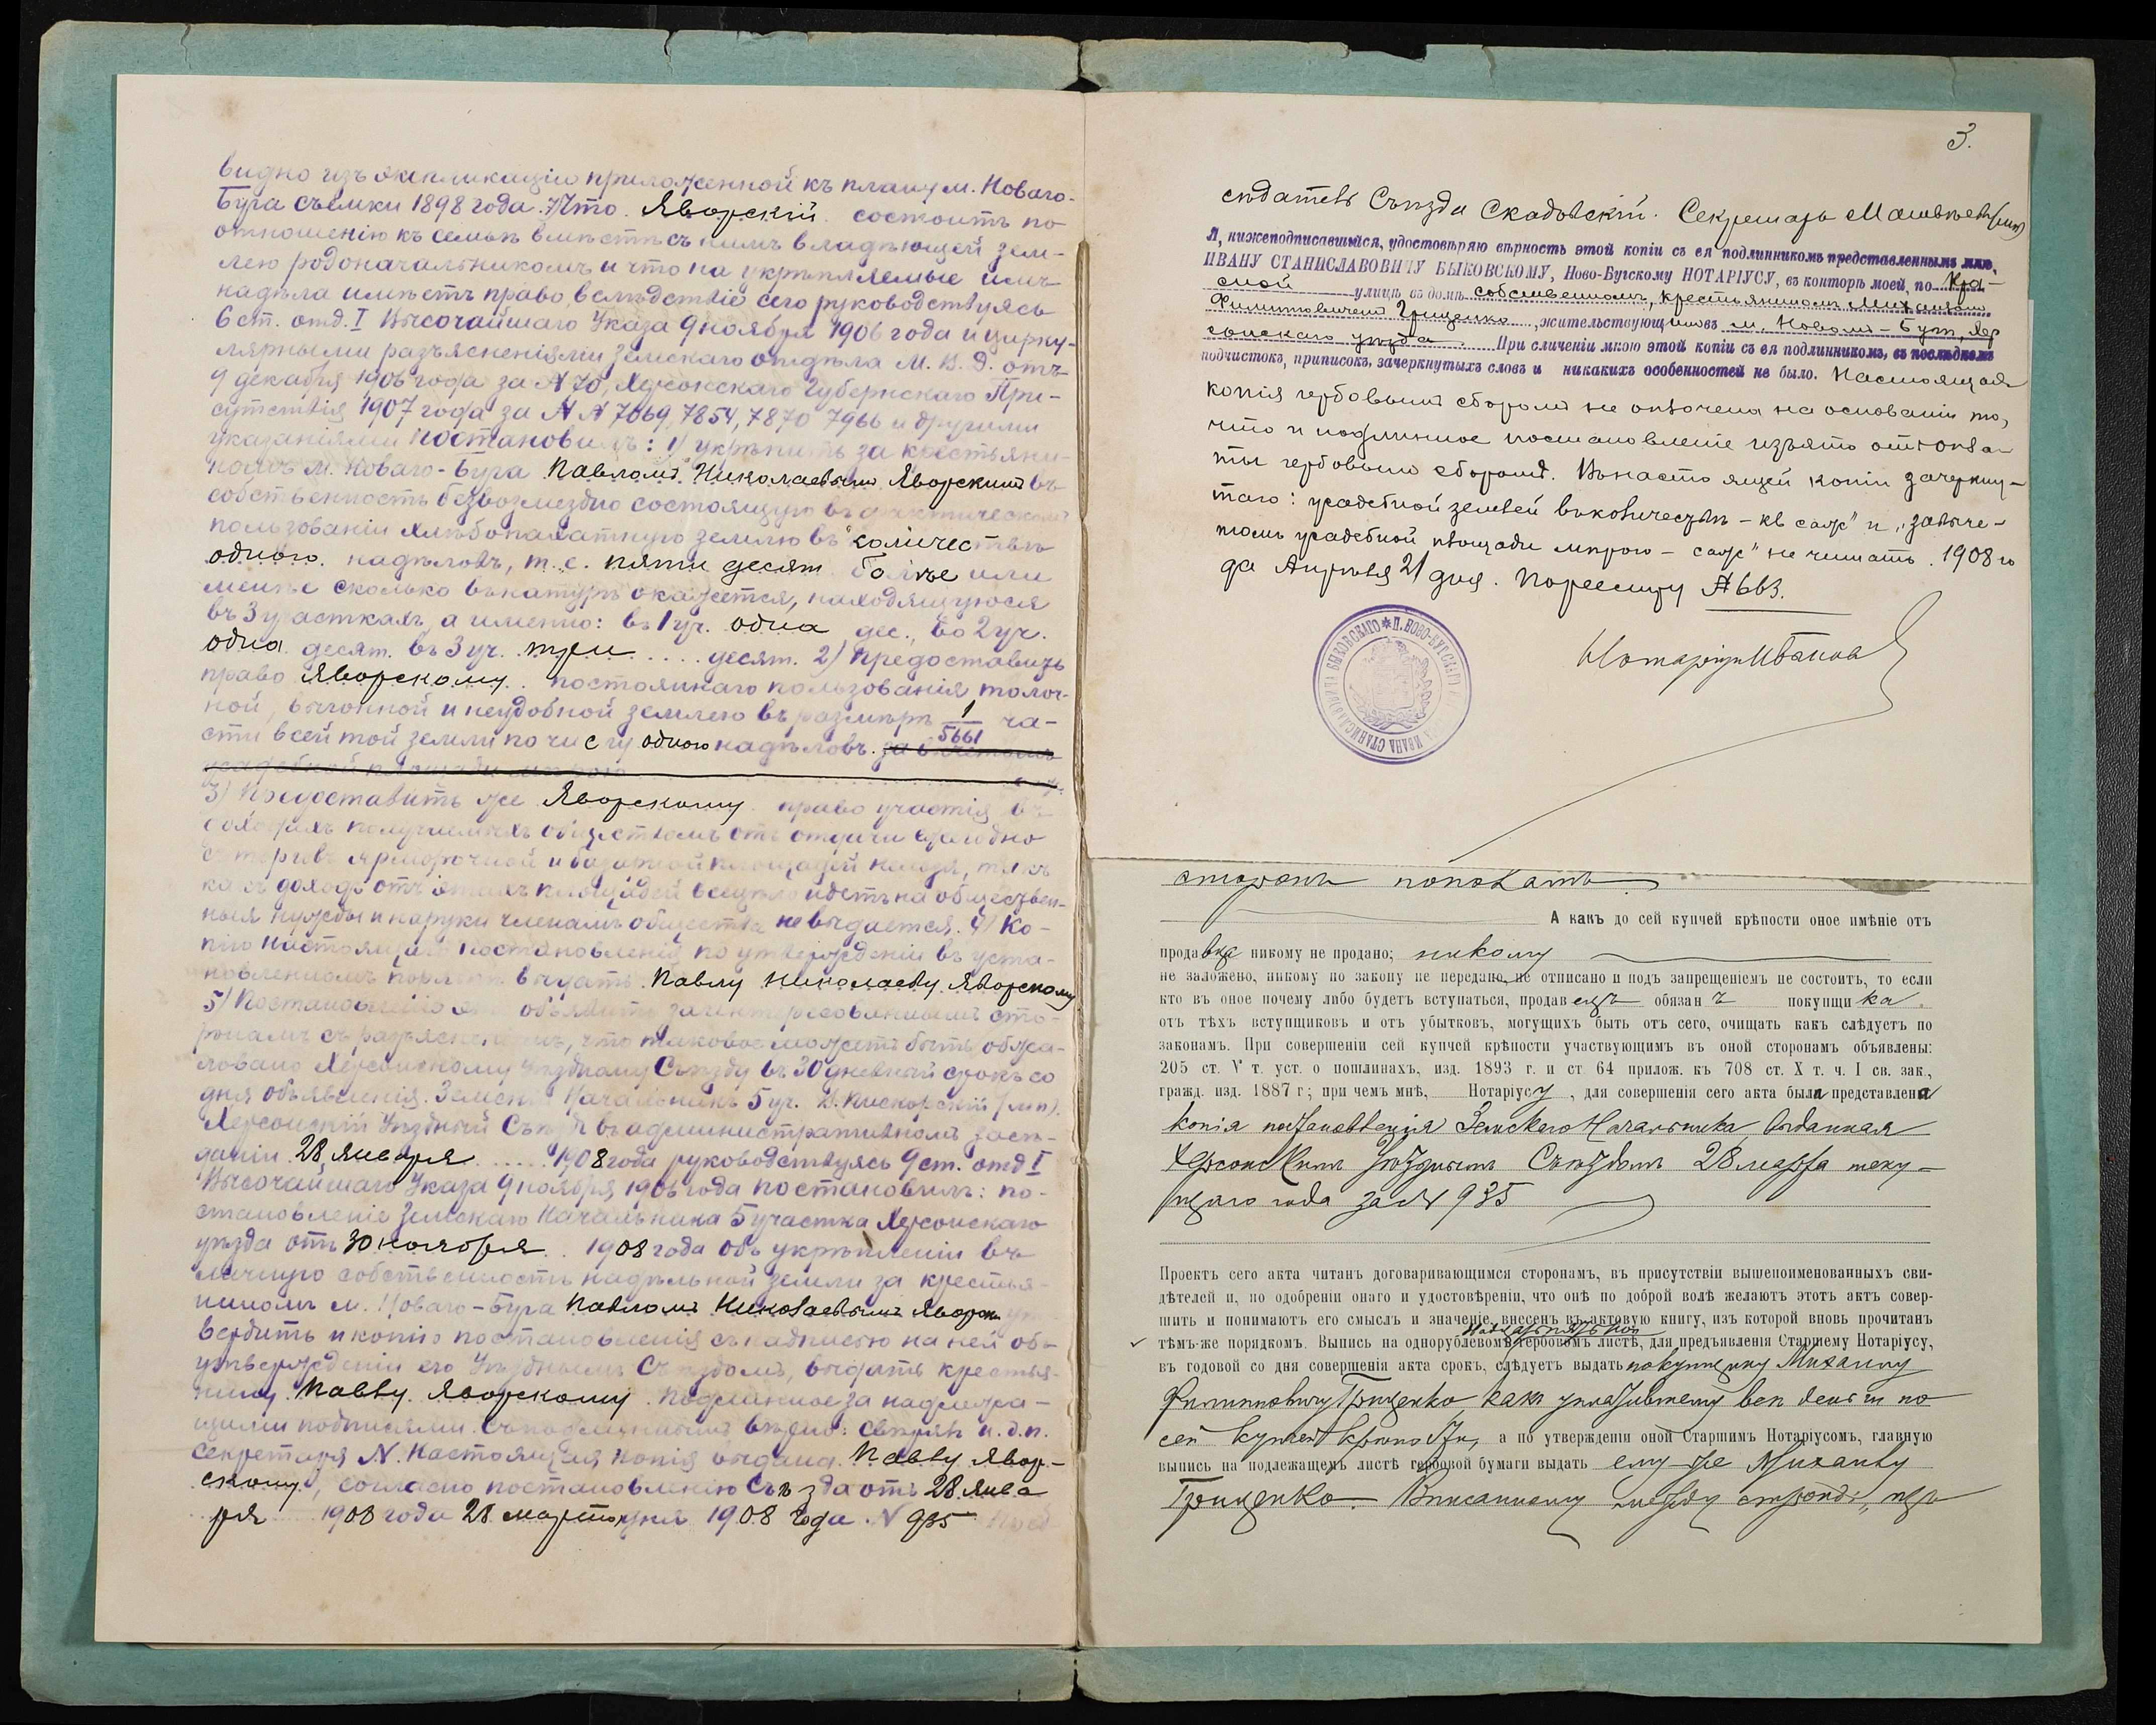 видно изъ экспликаціи приложенной къ плану м. Новаго-
Буга съемки 1898 года. 7/ Что Яворскій состоитъ по
отношенію къ семьѣ вмѣстѣ съ нимъ владѣющей зем-
лею родоначальникомъ и что на укрѣпляемые имъ
надѣла имѣетъ право, вслѣдствіе сего руководствуясь
6 ст. отд. I Высочайшаго Указа 9 ноября 1906 года и цирку-
лярными разъясненіями Земскаго отдѣла М. В. Д. отъ
9 декабря 1906 года за № 70, Херсонскаго Губернскаго При-
сутствія 1907 года за №№ 7069, 7854, 7870 7966 и другими
указаніями постановилъ: 1/ укрѣпить за крестьяни-
номъ м. Новаго-Буга Павломъ Николаевымъ Яворскимъ въ
собственность безвозмездно состоящую въ фактическомъ
пользованіи хлѣбопахатную землю въ количествѣ
одного надѣловъ, т. е. пяти десят. болѣе или
менѣе сколько въ натурѣ окажется, находящуюся
въ 3 участкахъ, а именно: въ 1 уч. одна дес., во 2 уч.
одна десят. въ 3 уч. три .... десят. 2) Предоставить
право Яворскому постояннаго пользованія толоч-
ной, выгонной и неудобной землею въ размѣрѣ 1/5661 ча-
сти всей той земли по числу одного надѣловъ. за вычетомъ
усадебной площади мѣрою
3) Предоставить же Яворскому право участія въ
доходахъ получаемыхъ обществомъ отъ отдачи ежегодно
съ торговъ ярморочной и базарной площадей нельзя, такъ
какъ доходъ отъ этихъ площадей всецѣло идетъ на обществен-
ныя нужды и на руки членамъ общества не выдается. 4) Ко-
пію настоящаго постановленія по утвержденіи въ уста-
новленномъ порядкѣ выдать Павлу Николаеву Яворскому
5) Постановленіе это объявить заинтересованнымъ сто-
ронамъ съ разъясненіемъ, что таковое можетъ быть обжа-
ловано Херсонскому Уѣздному Съѣзду въ 30 дневный срокъ со
дня объявленія. Земскій Начальникъ 5 уч. В. Пискорскій (м п).
Херсонскій Уѣздный Съѣздъ въ административномъ засѣ-
даніи 28 Января ..... 1908 года руководствуясь 9 ст. отд I
Высочайшаго Указа 9 ноября 1906 года постановилъ: по-
становленіе Земскаго Начальника 5 участка Херсонскаго
уѣзда отъ 30 ноября .. 1908 года объ укрѣпленіи въ
личную собственность надѣльной земли за крестья-
ниномъ м. Новаго-Буга Павломъ Николаевымъ Яворск. ут
вердить и копію постановленія съ надписью на ней объ
утвержденіи его Уѣзднымъ Съѣздомъ, выдать крестья-
нину Павлу Яворскому. Подлинное за надлежа-
щими подписями. Съ подлиннымъ вѣрно: свѣрялъ и. д. п.
секретаря N. Настоящая копія выдана Павлу Явор-
скому, согласно постановленію Съѣзда отъ 28 Янва
ря 1908 года 28 марта дня 1908 года. № 935 Пред
3.
сѣдатель Съѣзда Скадовскій. Секретарь Матвѣевъ (мп)
Я, нижеподписавшійся, удостовѣряю вѣрность этой копіи съ ея подлинникомъ представленнымъ мнѣ,
ИВАНУ СТАНИСЛАВОВИЧУ БЫКОВСКОМУ, Ново-Бугскому НОТАРІУСУ, въ конторѣ моей, по Кра-
сной улицѣ въ домѣ собственномъ, крестьяниномъ Михаиломъ
Филиповичемъ Грищенко, жительствующимъ въ м. Новомъ-Бугѣ, Хер
сонскаго уѣзда. При сличеніи мною этой копіи съ ея подлинникомъ, въ послѣднемъ
подчистокъ, приписокъ, зачеркнутыхъ словъ и никакихъ особенностей не было. Настоящая
копія гербовымъ сборомъ не оплочена на основаніи то,
что и подлинное постановленіе изъято отъ опла-
ты гербовымъ сборомъ. Въ настоящей копіи зачеркну-
таго: усадебной землей въ количествѣ - кв саж" и "за выче-
томъ усадебной площади мѣрою - саж" не читать. 1908 го
да Апрѣля 21 дня. По реестру № 663.
Нотаріусъ
П. НОВО-БУГСКАГО ИВАНА СТАНИСЛАВОВИЧА БЫКОВСКАГО
сторонъ
А какъ до сей купчей крѣпости оное имѣніе отъ
продавца никому не продано; никому
не заложено, никому по закону не передано, не отписано и подъ запрещеніемъ не состоитъ, то если
кто въ оное почему либо будетъ вступаться, продавецъ обязанъ покупщика
отъ тѣхъ вступщиковъ и отъ убытковъ, могущихъ быть отъ сего, очищать какъ слѣдуетъ по
законамъ. При совершеніи сей купчей крѣпости участвующимъ въ оной сторонамъ объявлены:
205 ст. V т. уст. о пошлинахъ, изд. 1893 г. и ст 64 прилож. къ 708 ст. X т. ч. I св. зак.,
гражд. изд. 1887 г; при чемъ мнѣ, Нотаріусу, для совершенія сего акта была представлена
копія постановленія Земскаго Начальника, выданная
Херсонскимъ Уѣзднымъ Съѣздомъ 28 марта теку-
щаго года за № 935
Проектъ сего акта читанъ договаривающимся сторонамъ, въ присутствіи вышепоименованныхъ сви-
дѣтелей и, по одобреніи онаго и удостовѣреніи, что онѣ по доброй волѣ желаютъ этотъ актъ совер-
шить и понимаютъ его смыслъ и значеніе, внесенъ въ актовую книгу, изъ которой вновь прочитанъ
тѣмъ-же порядкомъ. Выпись на однорублевомъ гербовомъ листѣ, для предъявленія Старшему Нотаріусу,
въ годовой со дня совершенія акта срокъ, слѣдуетъ выдать покупщику Михаилу
Филипповичу Грищенко, какъ уплатившему всѣ деньги по
сей купчей крѣпости, а по утвержденіи оной Старшимъ Нотаріусомъ, главную
выпись на подлежащемъ листѣ гербовой бумаги выдать ему-же Михаилу
Грищенко. Вписанному между строкъ: